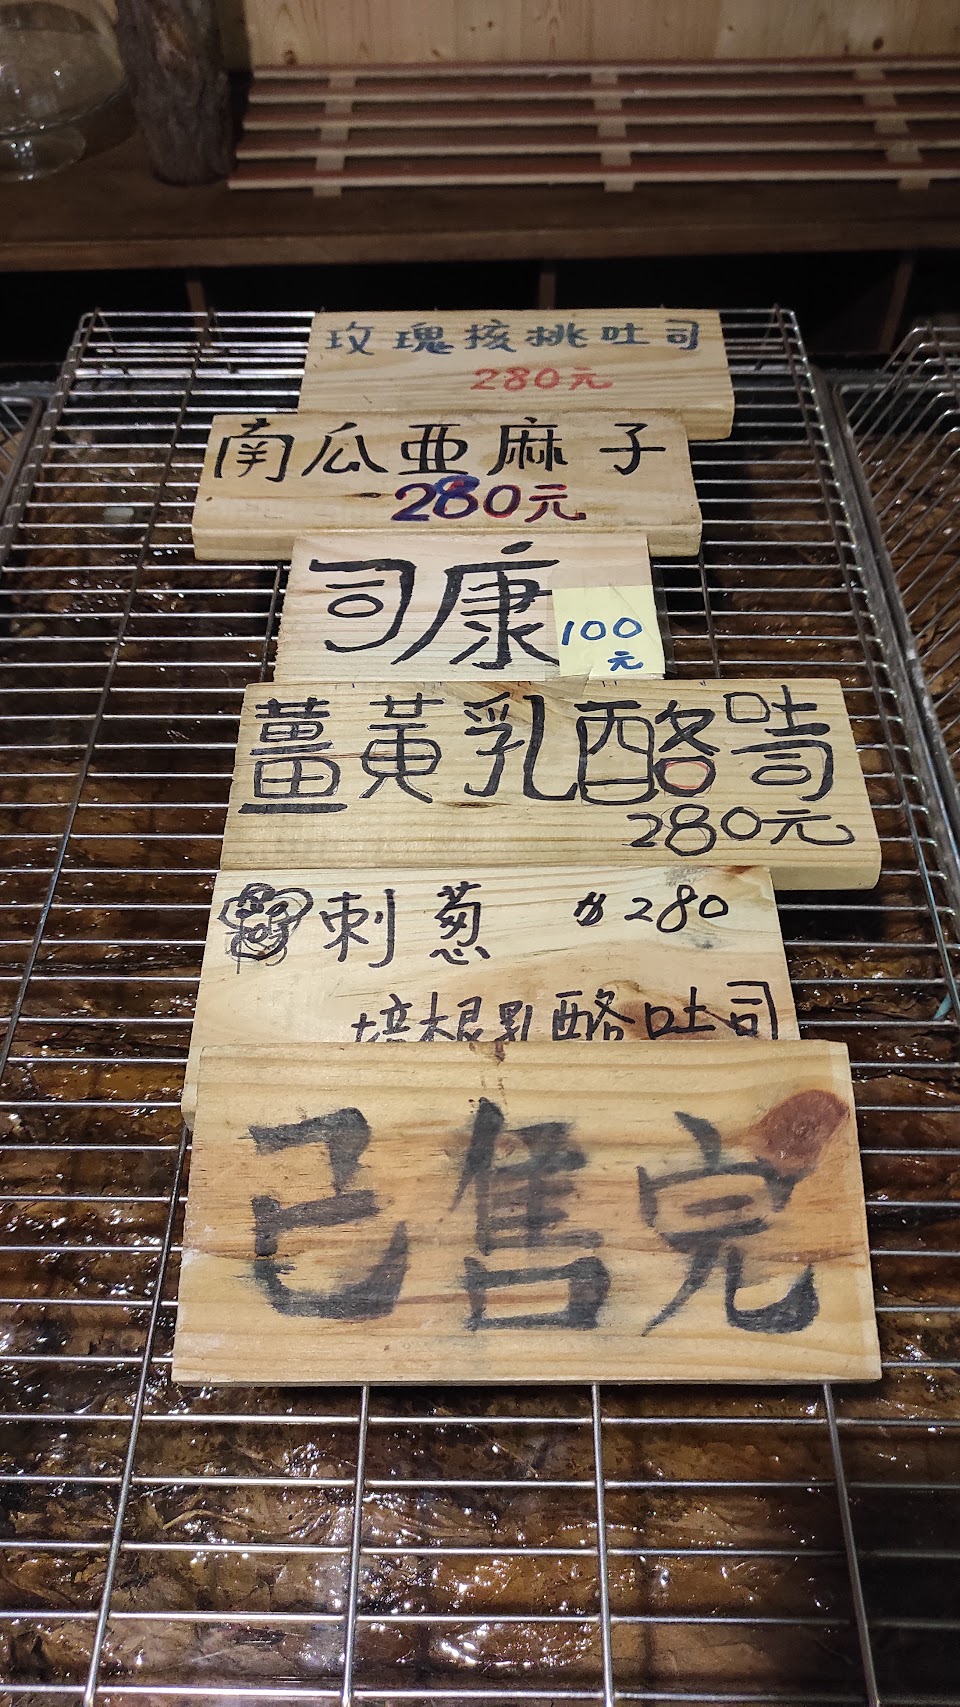 玫瑰核桃吐司
280元
南瓜亞麻子
280元
司康
100
元
薑黃乳酪吐司
280元
刺蔥 $280
培根乳酪吐司
已售完